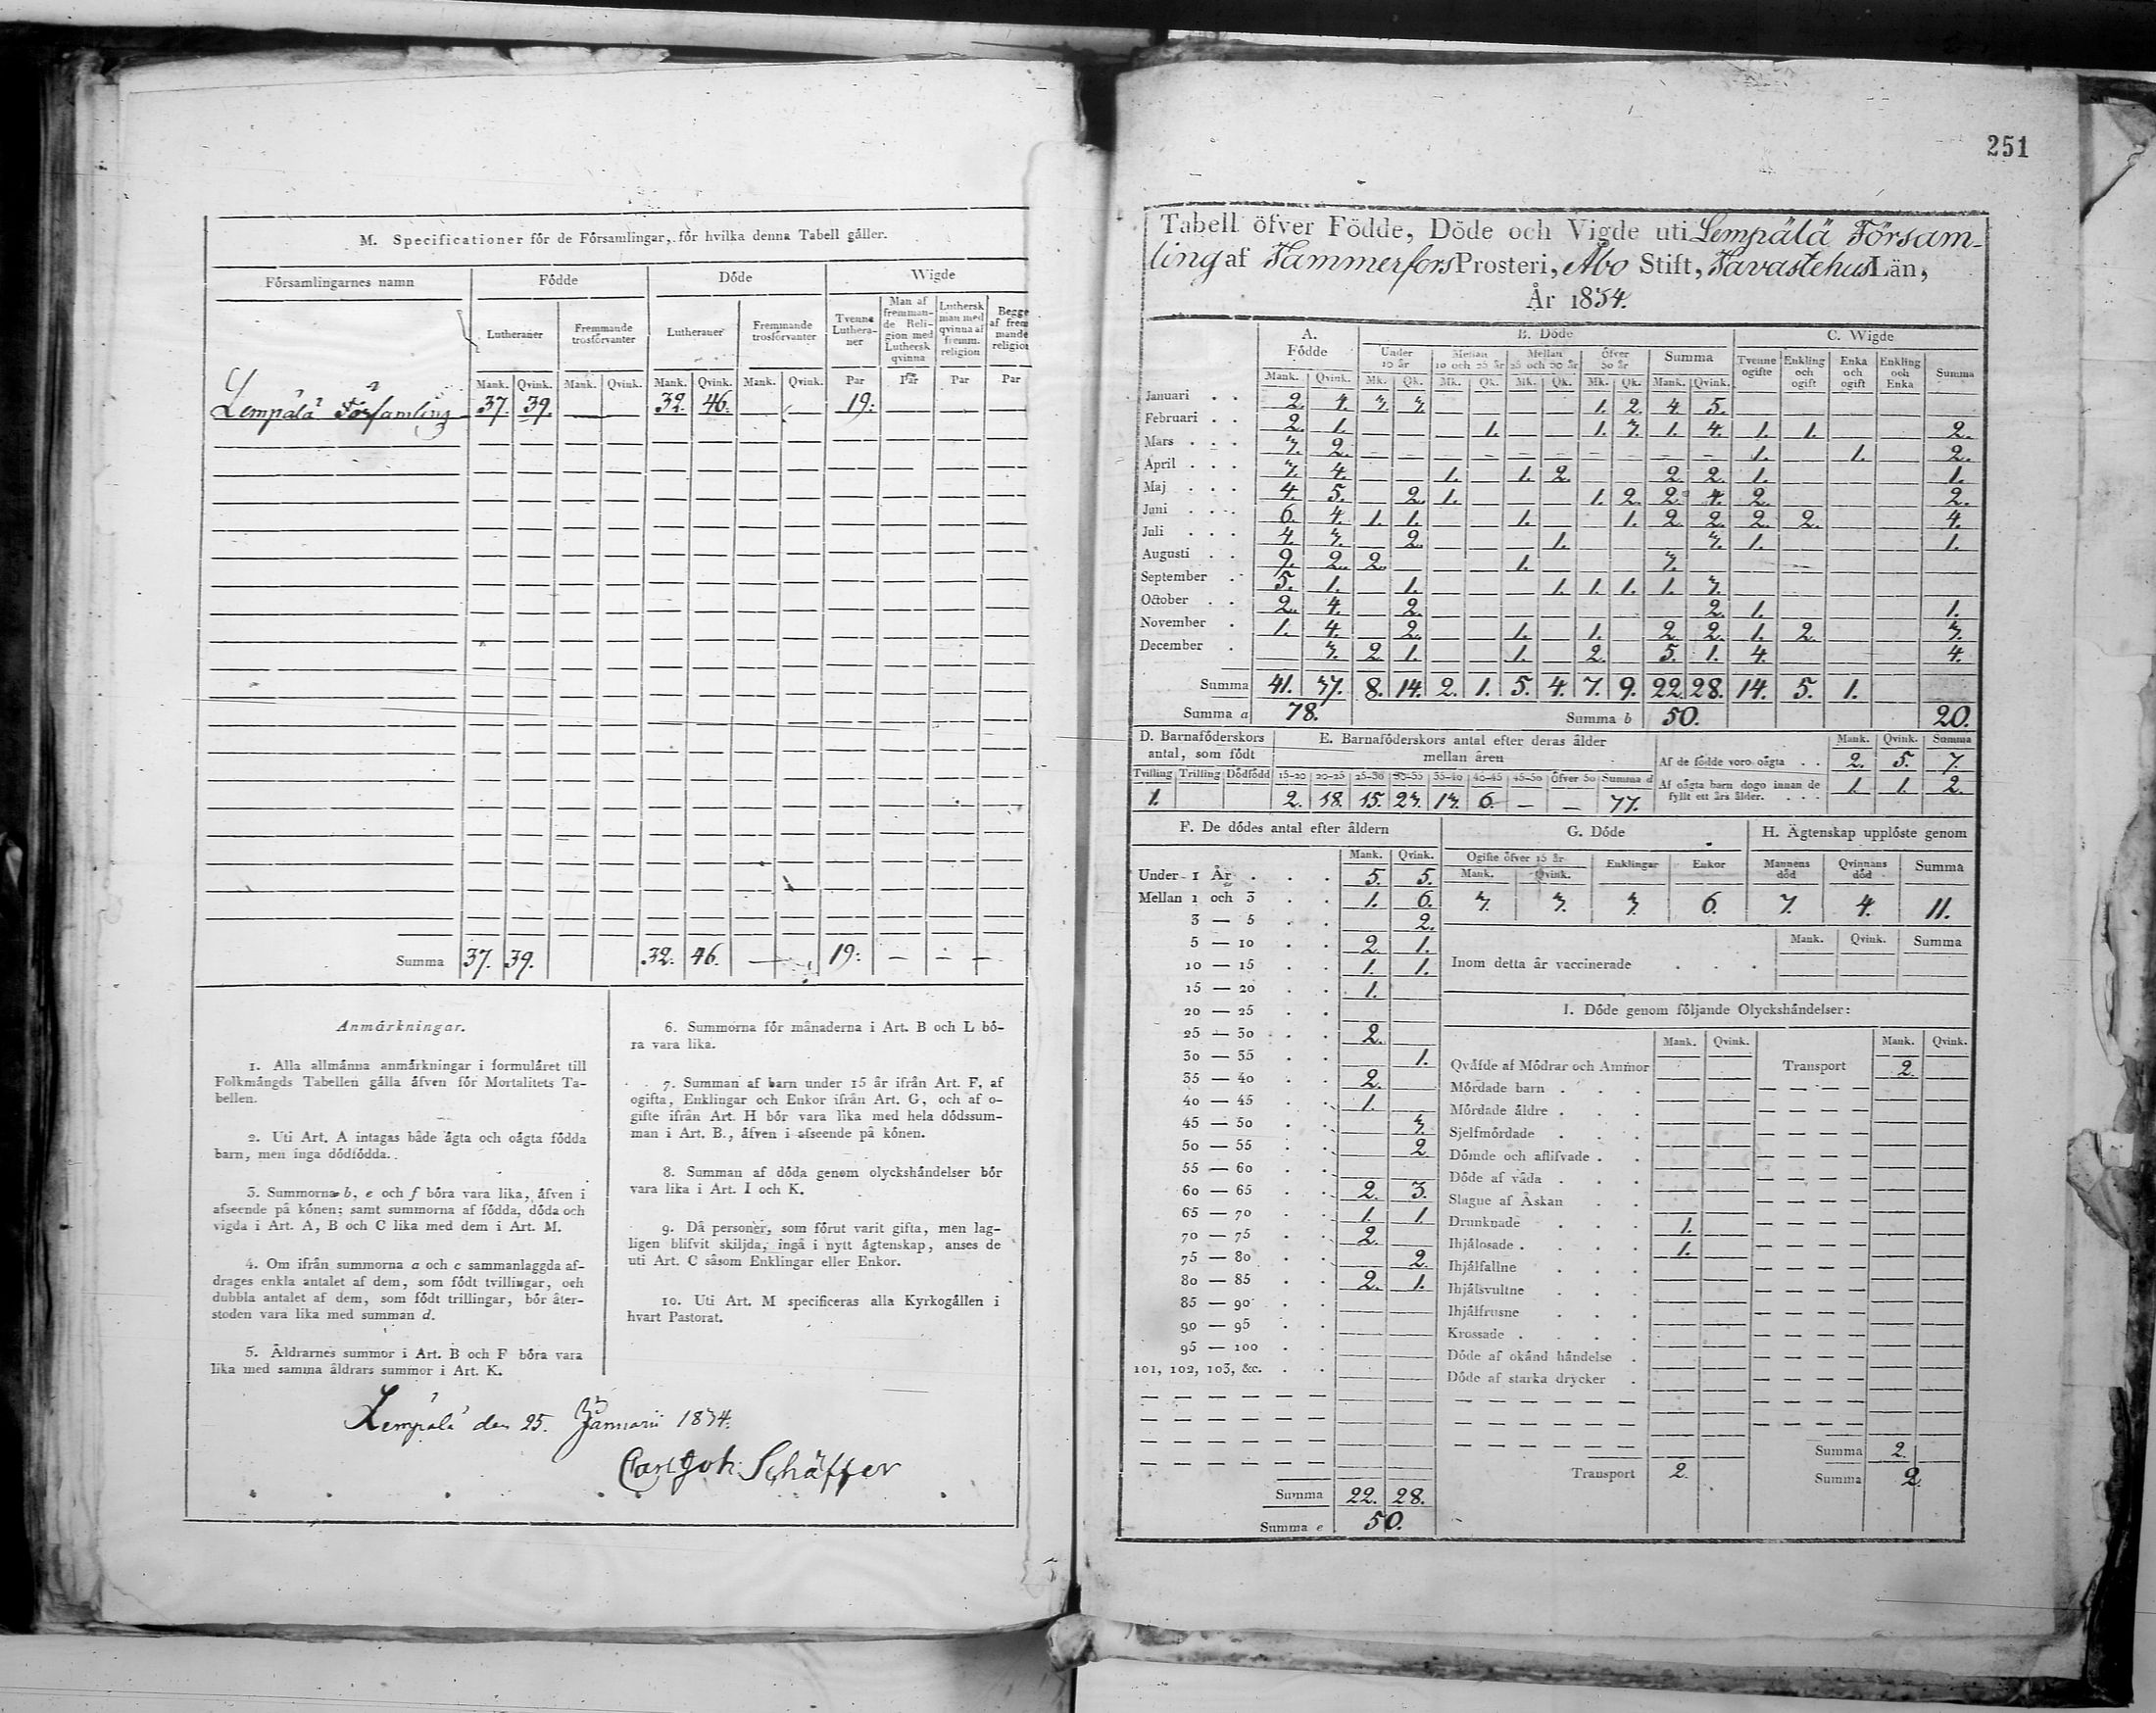 M. Specificationer för de Församlingar, för hvilka denna Tabell gäller.
Församlingarnes namn | Födde | Döde | Wigde
Lutheraner | Fremmande trosförvanter | Lutheraner | Fremmande trosförvanter | Tvenne Lutheraner | Man af fremmande Religion med Luthersk qvinna | Luthersk man med qvinna af fremm. religion | Begge af frem mande religion
Mank. Qvink. Mank. Qvink. Mank. Qvink. Mank. Qvink. Par Par Par Par
Lempälä Församling 37. 39. — — 32. 46. — — 19: — — —
Summa 37. 39. 32. 46. — — 19: — — —
Anmärkningar.
1. Alla allmänna anmärkningar i formuläret till
Folkmängds Tabellen gälla äfven för Mortalitets Ta-
bellen.
2. Uti Art. A intagas både ägta och oägta födda
barn, men inga dödfödda.
3. Summorna b, e och f böra vara lika, äfven i
afseende på könen; samt summorna af födda, döda och
vigda i Art. A, B och C lika med dem i Art. M.
4. Om ifrån summorna a och c sammanlaggda af-
drages enkla antalet af dem, som födt tvillingar, och
dubbla antalet af dem, som födt trillingar, bör åter-
stoden vara lika med summan d.
5. Åldrarnes summor i Art. B och F böra vara
lika med samma åldrars summor i Art. K.
6. Summorna för månaderna i Art. B och L bö-
ra vara lika.
7. Summan af barn under 15 år ifrån Art. F, af
ogifta, Enklingar och Enkor ifrån Art. G, och af o-
gifte ifrån Art. H bör vara lika med hela dödssum-
man i Art. B., äfven i afseende på könen.
8. Summan af döda genom olyckshändelser bör
vara lika i Art. I och K.
9. Då personer, som förut varit gifta, men lag-
ligen blifvit skiljda, ingå i nytt ägtenskap, anses de
uti Art. C såsom Enklingar eller Enkor.
10. Uti Art. M specificeras alla Kyrkogällen i
hvart Pastorat.
Lempälä den 25. Januarii 1834.
Carl Joh: Schäffer
251
Tabell öfver Födde, Döde och Vigde uti Lempälä Församling
af Tammerfors Prosteri, Åbo Stift, Tavastehus Län,
År 1834.
A. Födde | B. Döde | C. Wigde
Under 10 år | Mellan 10 och 25 år | Mellan 25 och 50 år | Öfver 50 år | Summa | Tvenne ogifte | Enkling och ogift | Enka och ogift | Enkling och Enka | Summa
Mank. Qvink. Mk. Qk. Mk. Qk. Mk. Qk. Mk. Qk. Mank. Qvink.
Januari . . 2. 4. 3. 3. 1. 2. 4. 5.
Februari . . 2. 1. 1. 1. 3. 1. 4. 1. 1. 2.
Mars . . . 3. 2. — — — — — — — — — — 1. 1. 2.
April . . . 3. 4. 1. 1. 2. 2. 2. 1. 1.
Maj . . . 4. 5. 2. 1. 1. 2. 2. 4. 2. 2.
Juni . . . 6. 4. 1. 1. 1. 1. 2. 2. 2. 2. 4.
Juli . . . 4. 3. 2. 1. 3. 1. 1.
Augusti . . 9. 2. 2. 1. 3.
September . 5. 1. 1. 1. 1. 1. 1. 3.
October . . 2. 4. 2. 2. 1. 1.
November . 1. 4. 2. 1. 1. 2. 2. 1. 2. 3.
December . 3. 2. 1. 1. 2. 5. 1. 4. 4.
Summa 41. 37. 8. 14. 2. 1. 5. 4. 7. 9. 22. 28. 14. 5. 1.
Summa a 78. Summa b 50. 20.
D. Barnaföderskors antal, som födt
Tvilling Trilling Dödfödd
1.
E. Barnaföderskors antal efter deras ålder mellan åren
15-20 20-25 25-30 30-35 35-40 40-45 45-50 Öfver 50 Summa d
2. 18. 15. 23. 13. 6. — — 77.
Mank. Qvink. Summa
Af de födde voro oägta . . 2. 5. 7.
Af oägta barn dogo innan de fyllt ett års ålder. . . . 1. 1. 2.
F. De dödes antal efter åldern
Mank. Qvink.
Under 1 År . . . 5. 5.
Mellan 1 och 3 . . 1. 6.
3 — 5 . . 2.
5 — 10 . . 2. 1.
10 — 15 . . 1. 1.
15 — 20 . . 1.
20 — 25 . .
25 — 30 . . 2.
30 — 35 . . 1.
35 — 40 . . 2.
40 — 45 . . 1.
45 — 50 . . 3.
50 — 55 . . 2
55 — 60 . .
60 — 65 . . 2. 3.
65 — 70 . . 1. 1.
70 — 75 . . 2.
75 — 80 . . 2.
80 — 85 . . 2. 1.
85 — 90 . .
90 — 95 . .
95 — 100 . .
101, 102, 103, &c. . .
Summa 22. 28.
Summa e 50.
G. Döde
Ogifte öfver 15 år | Enklingar | Enkor
Mank. Qvink.
3. 3. 3. 6.
H. Ägtenskap upplöste genom
Mannens död | Qvinnans död | Summa
7. 4. 11.
Mank. Qvink. Summa
Inom detta år vaccinerade . . .
I. Döde genom följande Olyckshändelser:
Mank. Qvink. Mank. Qvink.
Qväfde af Mödrar och Ammor Transport 2.
Mördade barn . . .
Mördade äldre . . .
Sjelfmördade . . .
Dömde och aflifvade . .
Döde af våda . . .
Slagne af Åskan . .
Drunknade . . . 1.
Ihjälosade . . . . 1.
Ihjälfallne . . .
Ihjälsvultne . . .
Ihjälfrusne . . .
Krossade . . . .
Döde af okänd händelse .
Döde af starka drycker .
Summa 2.
Transport 2. Summa 2.